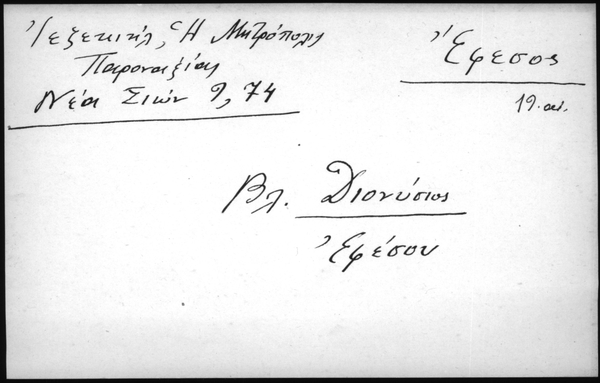 Ἰεζεκιήλ, Ἡ Μητρόπολις
Παροναξίας
Νέα Σιών 9, 74
Ἔφεσος
19. αἰ.
Βλ. Διονύσιος
Ἐφέσου